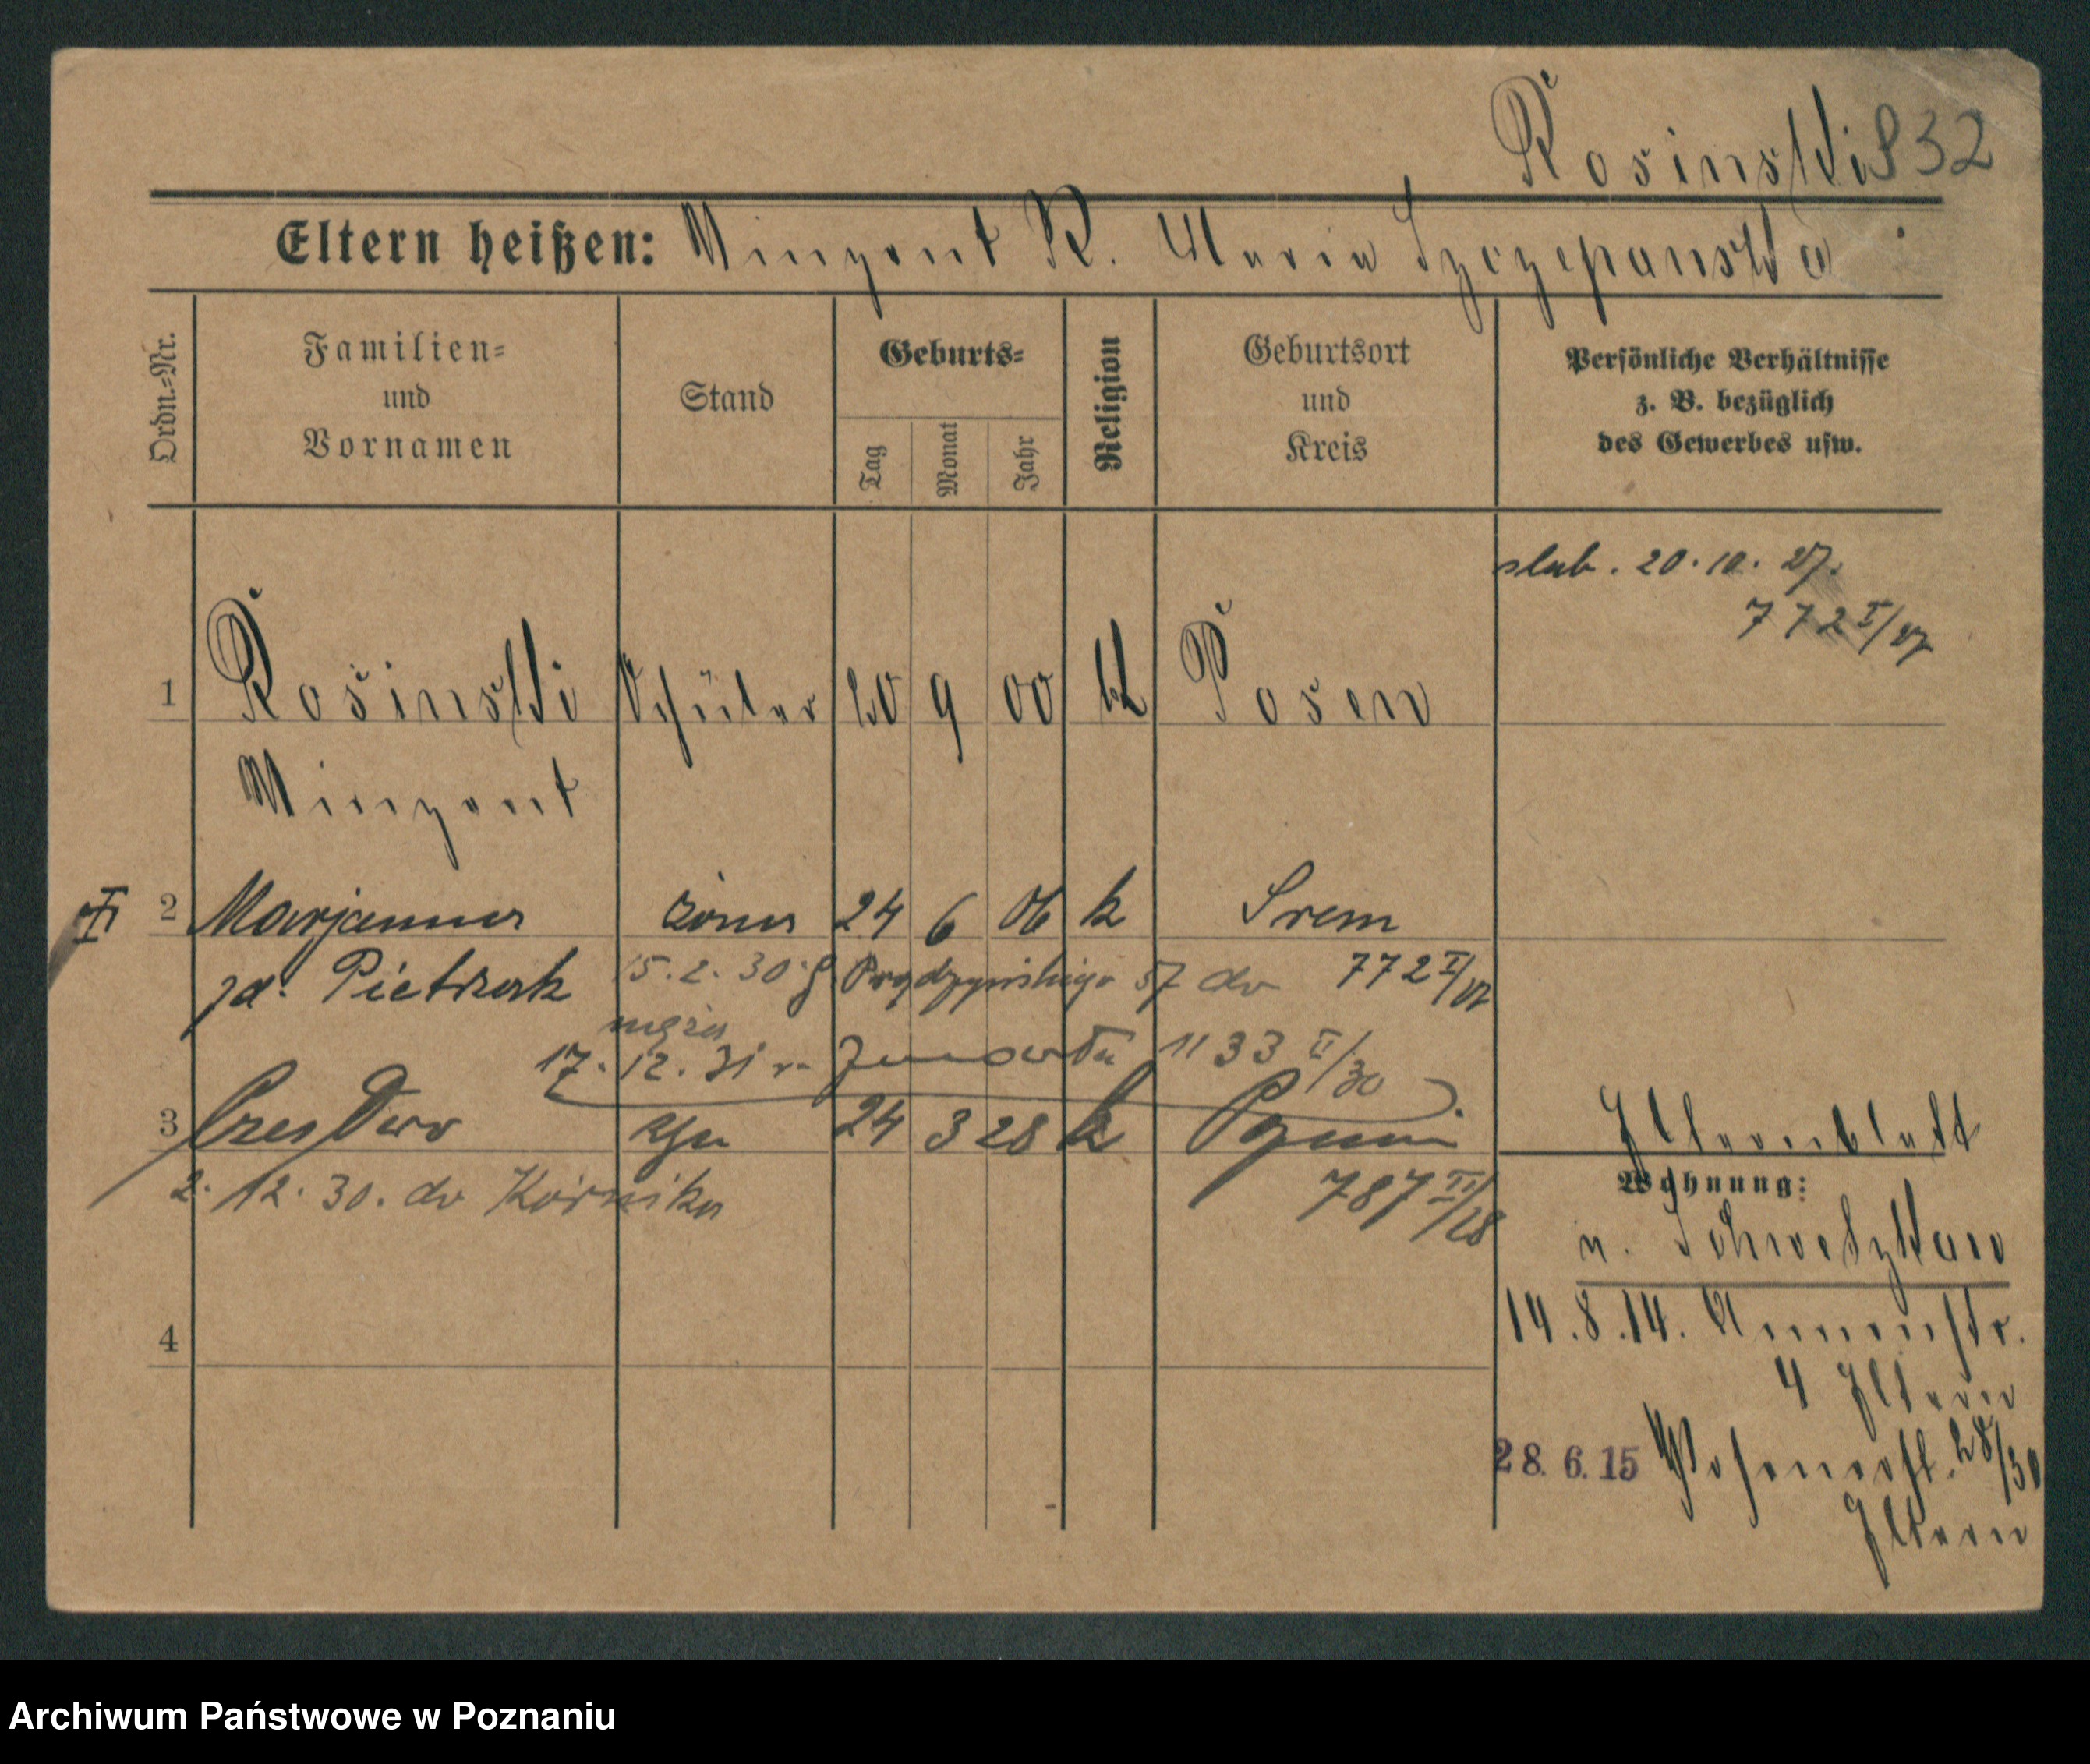 Rosinski 832
Eltern heißen: Winzent R. Maria Szczepanska
Ordn.-Nr.
Familien- und Vornamen
Stand
Geburts-
Tag
Monat
Jahr
Religion
Geburtsort und Kreis
Persönliche Verhältnisse z. B. bezüglich des Gewerbes usw.
slub. 20.10.27.
772 I/27
1 Rosinski Schüler 20 9 00 kt Posen
Winzent
II 2 Marjanna żona 24 6 06 k Srem
zd. Pietrzak 15.2.30. Prądzyńskiego 57 dv 772 I/27
męża
17.12.31 r. 1133 II/30
3 Czesław syn 24 3 28 k Poznań
2.12.30. do Kórnika 787 II/28
Elternblatt
Wohnung:
n. Schwetzkau
14.8.14. Annenstr.
4 Eltern
4
28.6.15 Posenerstr. 28/30
Eltern
Archiwum Państwowe w Poznaniu